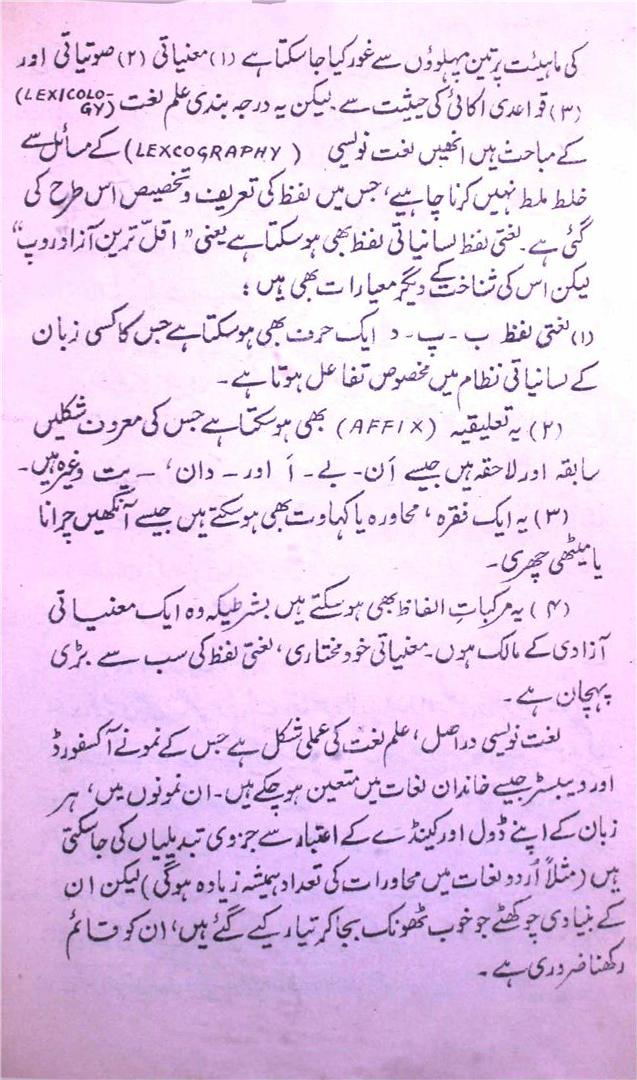 کی ماہیئت پر تین پہلوؤں سے غور کیا جا سکتا ہے (۱) معنیاتی (۲) صوتیاتی اور
(۳) قواعدی اکائی کی حیثیت سے۔ لیکن یہ درجہ بندی علم لغت (LEXICOLO-GY)
کے مباحث ہیں انھیں لغت نویسی (LEXCOGRAPHY) کے مسائل سے
خلط ملط نہیں کرنا چاہیے، جس میں لفظ کی تعریف و تخصیص اس طرح کی
گئی ہے۔ لغتی لفظ لسانیاتی لفظ بھی ہو سکتا ہے یعنی ”اقلّ ترین آزاد روپ“
لیکن اس کی شناخت کے دیگر معیارات بھی ہیں ؛
(۱) لغتی لفظ ب - پ - د ایک حرف بھی ہو سکتا ہے جس کا کسی زبان
کے لسانیاتی نظام میں مخصوص تفاعل ہوتا ہے۔
(۲) یہ تعلیقیہ (AFFIX) بھی ہو سکتا ہے جس کی معروف شکلیں
سابقہ اور لاحقہ ہیں جیسے اَن - بے - اَ اور - دان، - یت وغیرہ ہیں۔
(۳) یہ ایک فقرہ، محاورہ یا کہاوت بھی ہو سکتے ہیں جیسے آنکھیں چرانا
یا میٹھی چھری۔
(۴) یہ مرکباتِ الفاظ بھی ہو سکتے ہیں بشرطیکہ وہ ایک معنیاتی
آزادی کے مالک ہوں۔ معنیاتی خود مختاری، لغتی لفظ کی سب سے بڑی
پہچان ہے۔
لغت نویسی دراصل، علم لغت کی عملی شکل ہے جس کے نمونے آکسفورڈ
اور ویبسٹر جیسے خاندان لغات میں متعین ہو چکے ہیں۔ ان نمونوں میں، ہر
زبان کے اپنے ڈول اور کینڈے کے اعتبار سے جزوی تبدیلیاں کی جا سکتی
ہیں (مثلاً اُردو لغات میں محاورات کی تعداد ہمیشہ زیادہ ہوگی) لیکن ان
کے بنیادی چوکھٹے جو خوب ٹھونک بجا کر تیار کیے گئے ہیں، ان کو قائم
رکھنا ضروری ہے۔